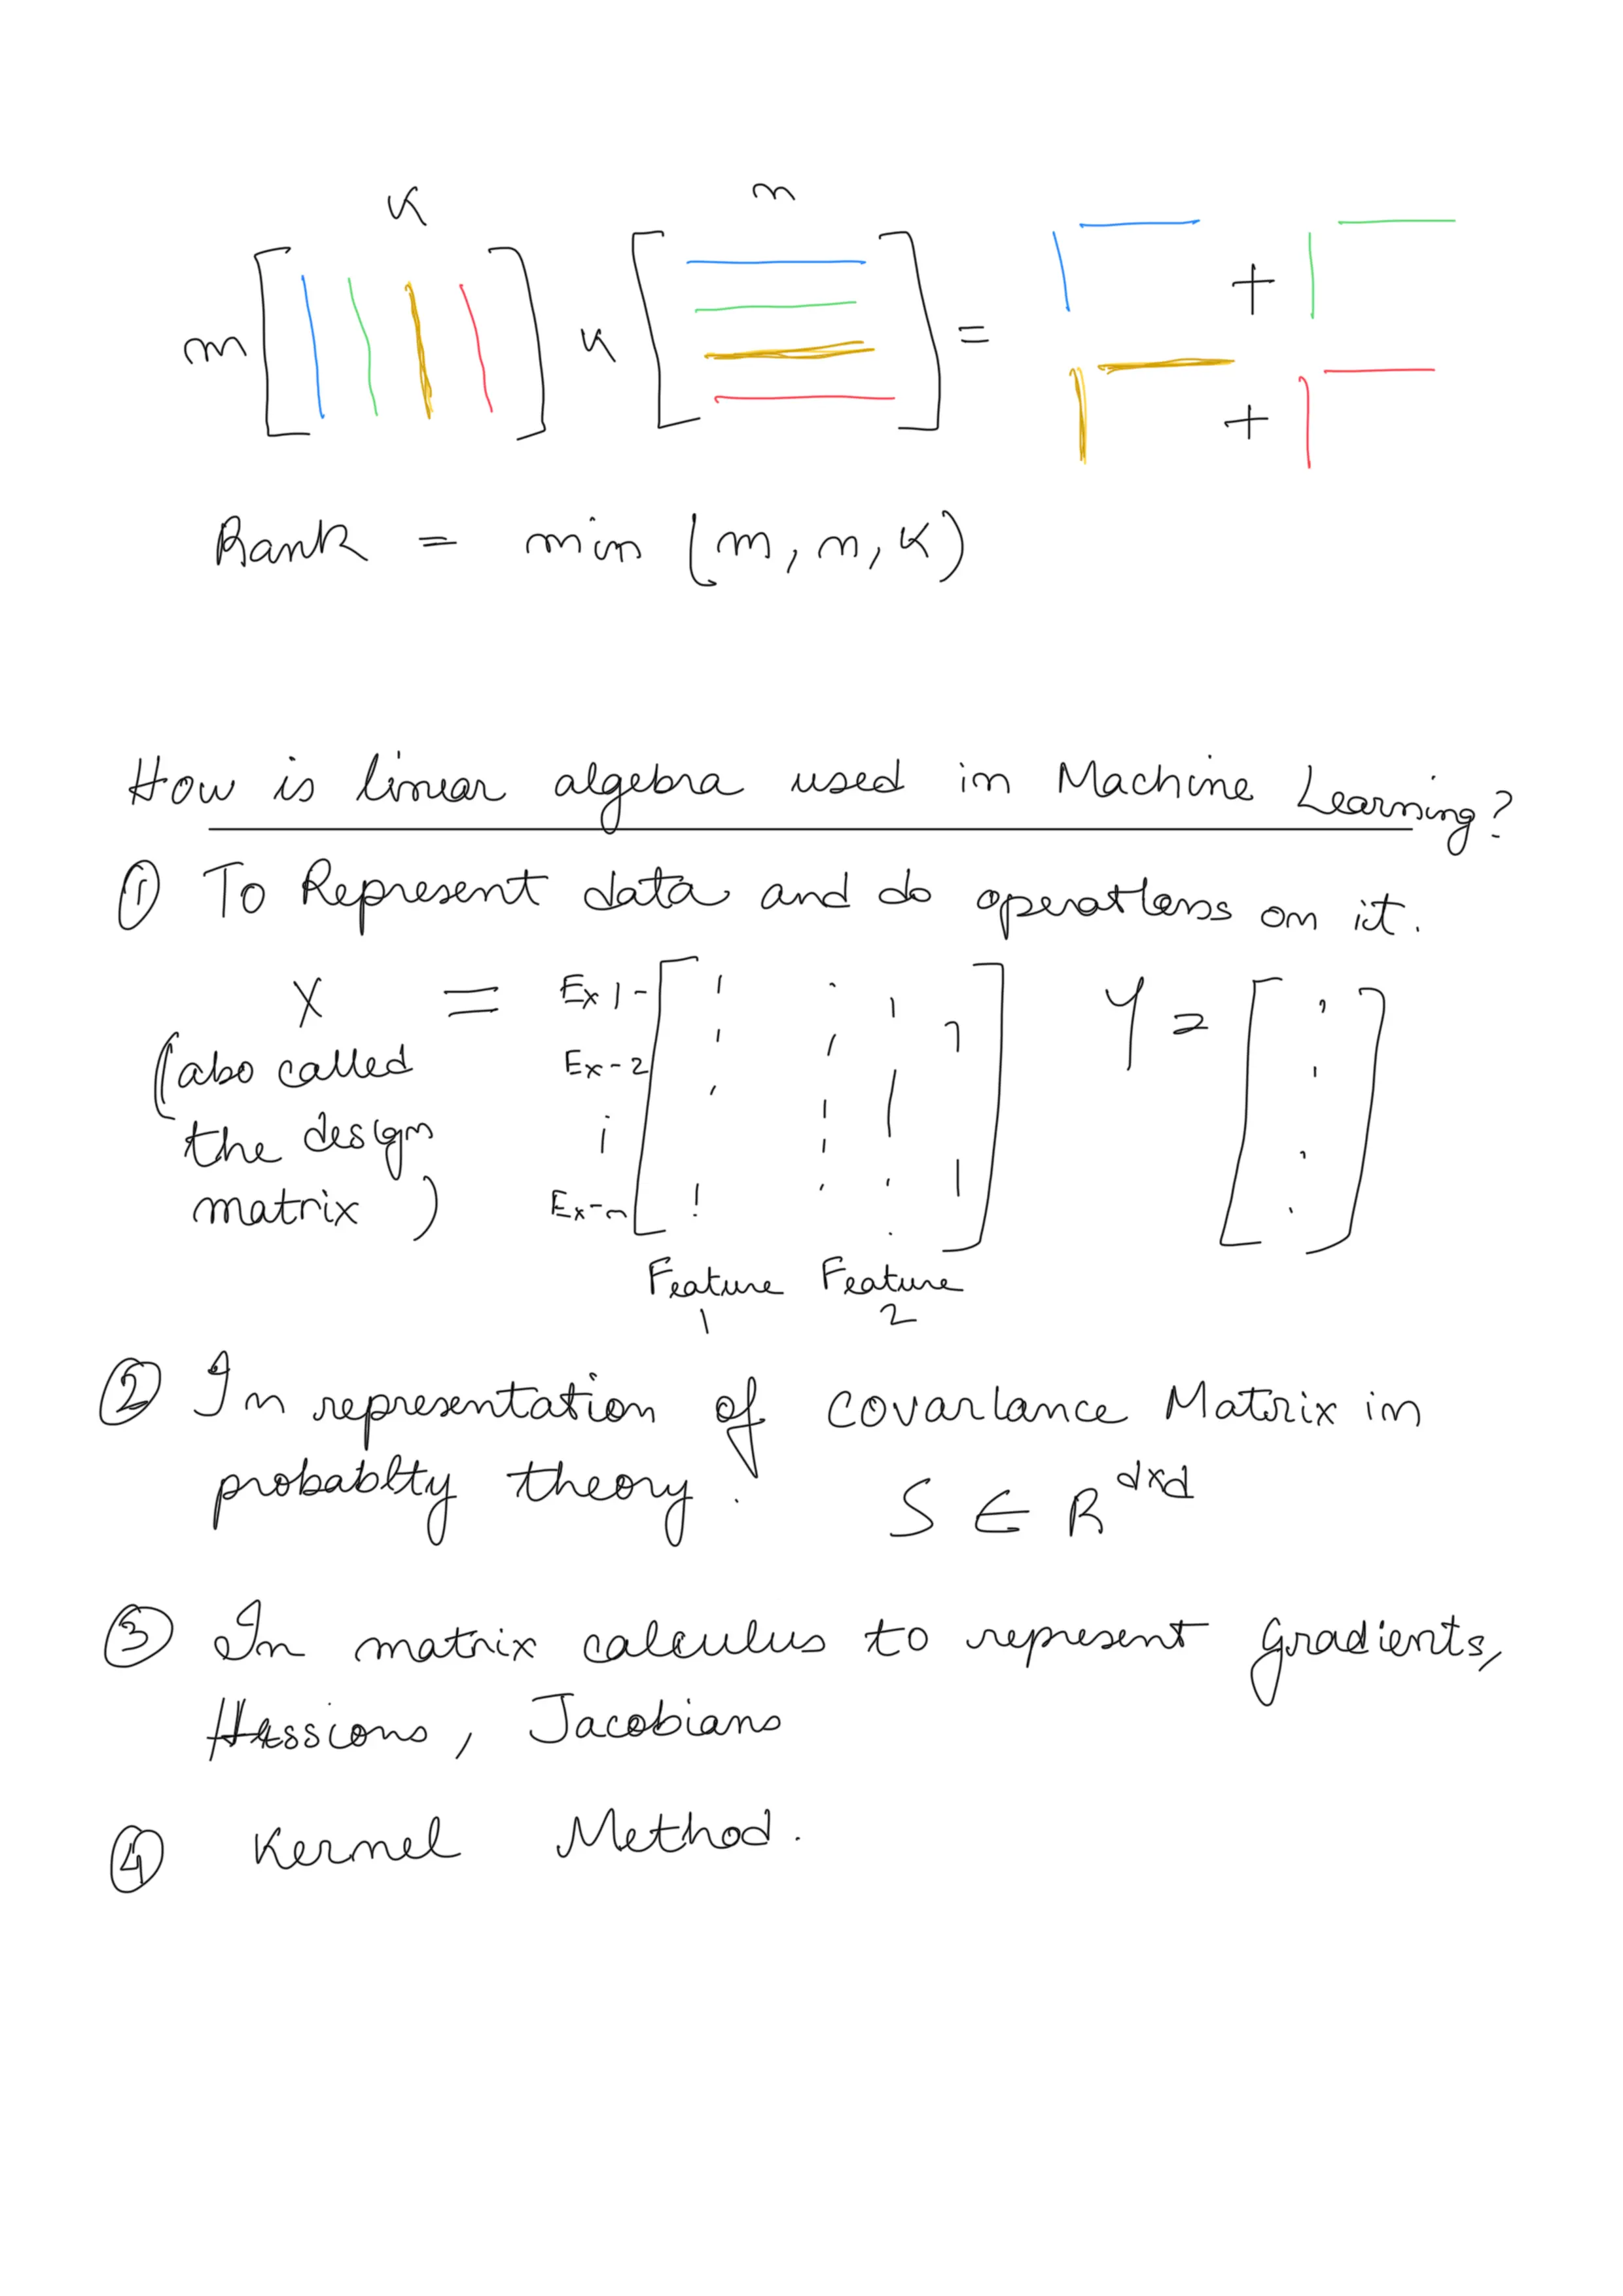 K n
m [ ] K [ ] = +
+
Rank = min (m, n, K)
How is linear algebra used in Machine Learning?
① To Represent data and do operations on it.
X = Ex 1 - Y =
(also called Ex - 2
the design
matrix ) Ex - n
Feature Feature
1 2
② In representation of covariance Matrix in
probablty theory. S ∈ R^dxd
③ In matrix calculus to represent gradients,
Hessions, Jacobians
④ Kernel Method.